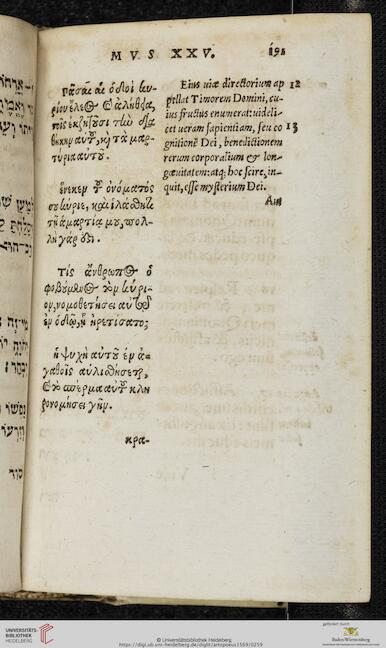 MVS XXV. 191
Πᾶσαι αἱ ὁδοὶ κυ-
ρίου ἔλεος καὶ ἀλήθεια,
τοῖς ἐκζητοῦσι τὴν δια
θήκην αὐτοῦ, καὶ τὰ μαρ-
τύρια αὐτοῦ.
ἕνεκεν τοῦ ὀνόματός
σου κύριε, καὶ ἱλάσθητι
τῇ ἁμαρτίᾳ μου, πολ-
λὴ γάρ ὅστι.
Τίς ἄνθρωπος ὁ
φοβούμενος τὸν κύρι-
ον, νομοθετήσει αὐτῷ
ἐν ὁδῷ, ᾗ ᾑρετίσατο;
ἡ ψυχὴ αὐτοῦ ἐν ἀ-
γαθοῖς αὐλισθήσεται,
καὶ τὸ σπέρμα αὐτοῦ κλη
ρονομήσει γῆν.
κρα-
Eius viæ directorium ap 12
pellat Timorem Domini, cu-
ius fructus enumerat: videli-
cet veram sapientiam, seu co 13
gnitionẽ Dei, benedictionem
rerum corporalium & lon-
gæuitatem: atq; hoc scire, in-
quit, esse mysterium Dei.
UNIVERSITÄTS-
BIBLIOTHEK
HEIDELBERG
© Universitätsbibliothek Heidelberg
https://digi.ub.uni-heidelberg.de/diglit/artopoeus1569/0259
gefördert durch
Baden-Württemberg